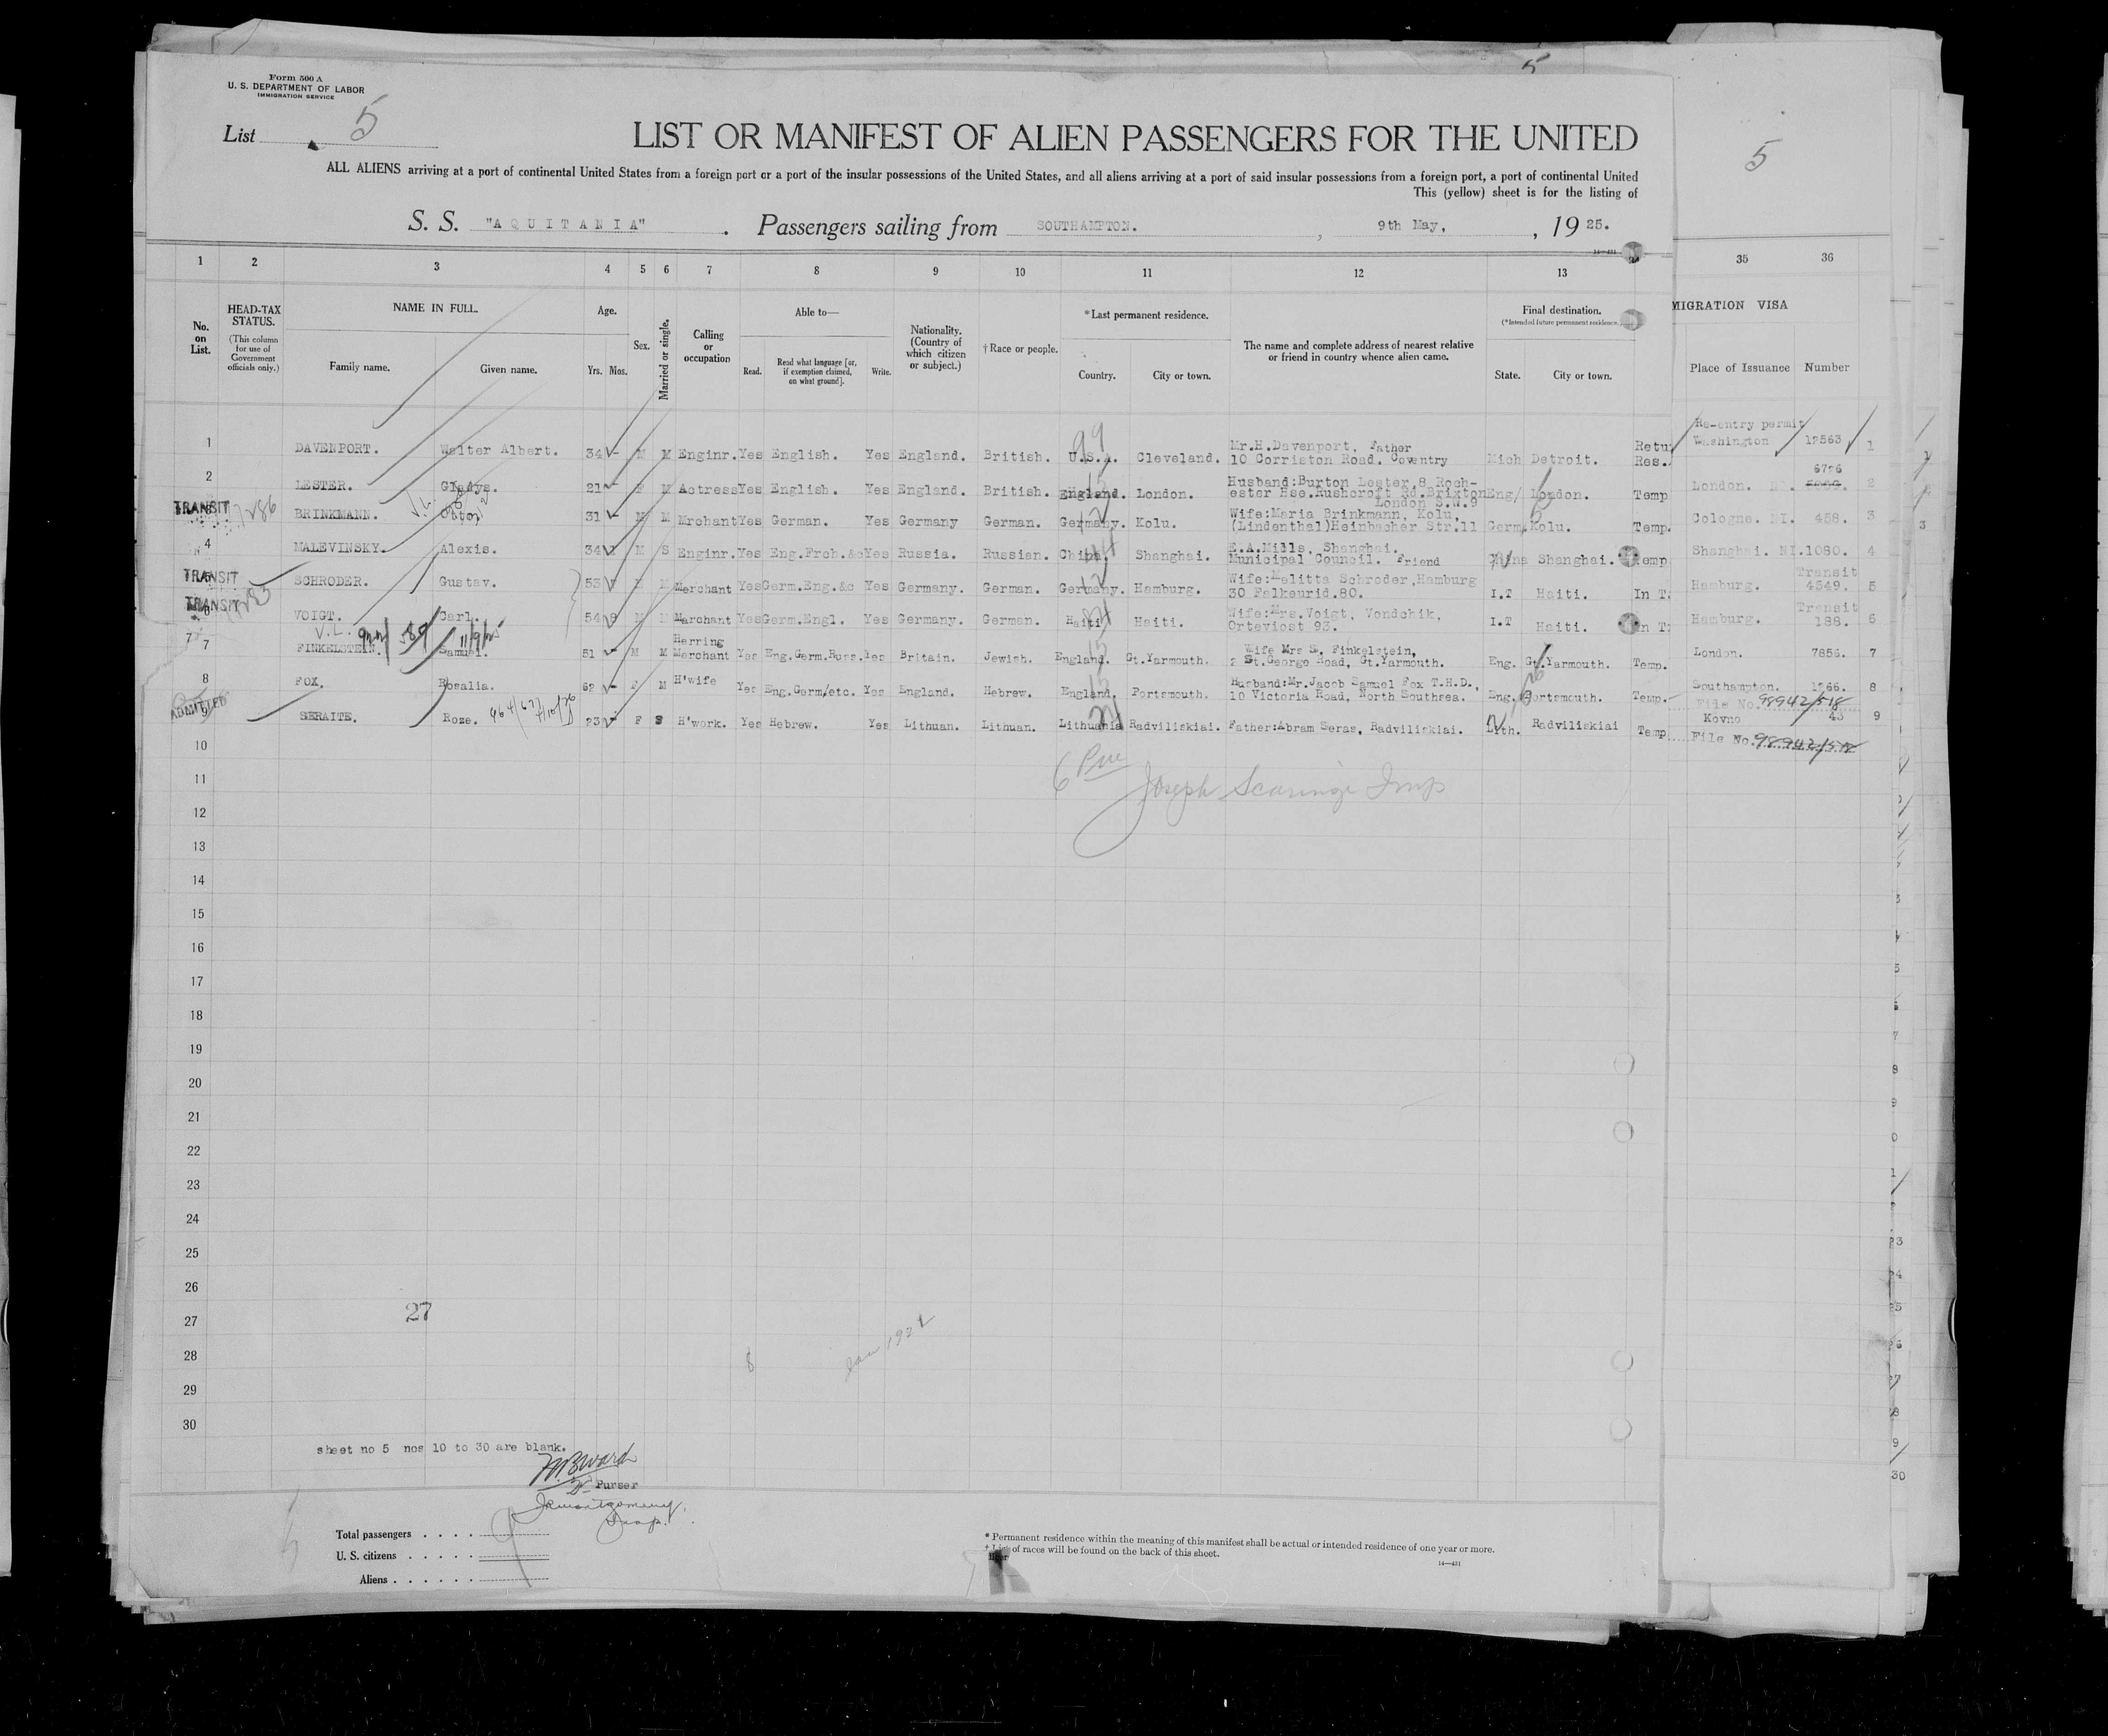 5
Form 500 A
U. S. DEPARTMENT OF LABOR
IMMIGRATION SERVICE
List 5
LIST OR MANIFEST OF ALIEN PASSENGERS FOR THE UNITED
5
ALL ALIENS arriving at a port of continental United States from a foreign port or a port of the insular possessions of the United States, and all aliens arriving at a port of said insular possessions from a foreign port, a port of continental United
This (yellow) sheet is for the listing of
S. S. "AQUITANIA" . Passengers sailing from SOUTHAMPTON. , 9th May, , 19 25.
14—431
1 2 3 4 5 6 7 8 9 10 11 12 13 35 36
No. on List. HEAD-TAX STATUS. (This column for use of Government officials only.) NAME IN FULL. Family name. Given name. Age. Yrs. Mos. Sex. Married or single. Calling or occupation Able to— Read. Read what language [or, if exemption claimed, on what ground]. Write. Nationality. (Country of which citizen or subject.) †Race or people. *Last permanent residence. Country. City or town. The name and complete address of nearest relative or friend in country whence alien came. Final destination. (*Intended future permanent residence.) State. City or town. MIGRATION VISA Place of Issuance Number
1 DAVENPORT. Walter Albert. 34 - M M Enginr. Yes English. Yes England. British. U.S.A. Cleveland. Mr.H.Davenport, Father 10 Corriston Road. Coventry Mich Detroit. Retu Res. Re-entry permit Washington 12563 1
2 LESTER. Gladys. 21 - F M Actress Yes English. Yes England. British. England. London. Husband:Burton Lester,8 Roch- ester Hse.Rushcroft Rd.Brixton London S.W.9 Eng/ London. Temp London. 6726 2
TRANSIT BRINKMANN. Otto. 31 - M M Mrchant Yes German. Yes Germany German. Germany. Kolu. Wife:Maria Brinkmann, Kolu, (Lindenthal)Heinbacher Str.11 Germ. Kolu. Temp. Cologne. NI. 458. 3
4 MALEVINSKY. Alexis. 34 M S Enginr. Yes Eng.Frch.&c Yes Russia. Russian. China Shanghai. E.A.Mills, Shanghai. Municipal Council. Friend China Shanghai. Temp Shanghai. NI. 1080. 4
TRANSIT SCHRODER. Gustav. 53 M M Merchant Yes Germ.Eng.&c Yes Germany. German. Germany. Hamburg. Wife:Melitta Schroder,Hamburg 30 Falkeurid.80. I.T Haiti. In T. Hamburg. Transit 4549. 5
TRANSIT VOIGT. Carl. 54 8 M M Marchant Yes Germ.Engl. Yes Germany. German. Haiti Haiti. Wife:Mrs.Voigt, Vondchik, Orteviost 93. I.T Haiti. In T. Hamburg. Transit 188. 6
7 FINKELSTEIN. Samuel. 51 - M M Herring Merchant Yes Eng.Germ.Russ. Yes Britain. Jewish. England. Gt.Yarmouth. Wife Mrs S, Finkelstein, 2 St.George Road, Gt.Yarmouth. Eng. Gt.Yarmouth. Temp. London. 7856. 7
8 FOX. Rosalia. 62 - F M H'wife Yes Eng.Germ/etc. Yes England. Hebrew. England. Portsmouth. Husband:Mr.Jacob Samuel Fox T.H.D., 10 Victoria Road, North Southsea. Eng. Portsmouth. Temp. Southampton. 1266. 8
File No. 98942/518
ADMITTED 9 SERAITE. Roze. 23 F S H'work. Yes Hebrew. Yes Lithuan. Lithuan. Lithuania Radviliskiai. Father:Abram Seras, Radviliskiai. Lith. Radviliskiai Temp Kovno 43 9
File No. 98942/512
10
6
11 Joseph Scaringi Insp
12
13
14
15
16
17
18
19
20
21
22
23
24
25
26
27 27
28
29
30
sheet no 5 nos 10 to 30 are blank.
Purser
Total passengers . . . .
U. S. citizens . . . . .
Aliens . . . . . .
* Permanent residence within the meaning of this manifest shall be actual or intended residence of one year or more.
† List of races will be found on the back of this sheet.
14—431